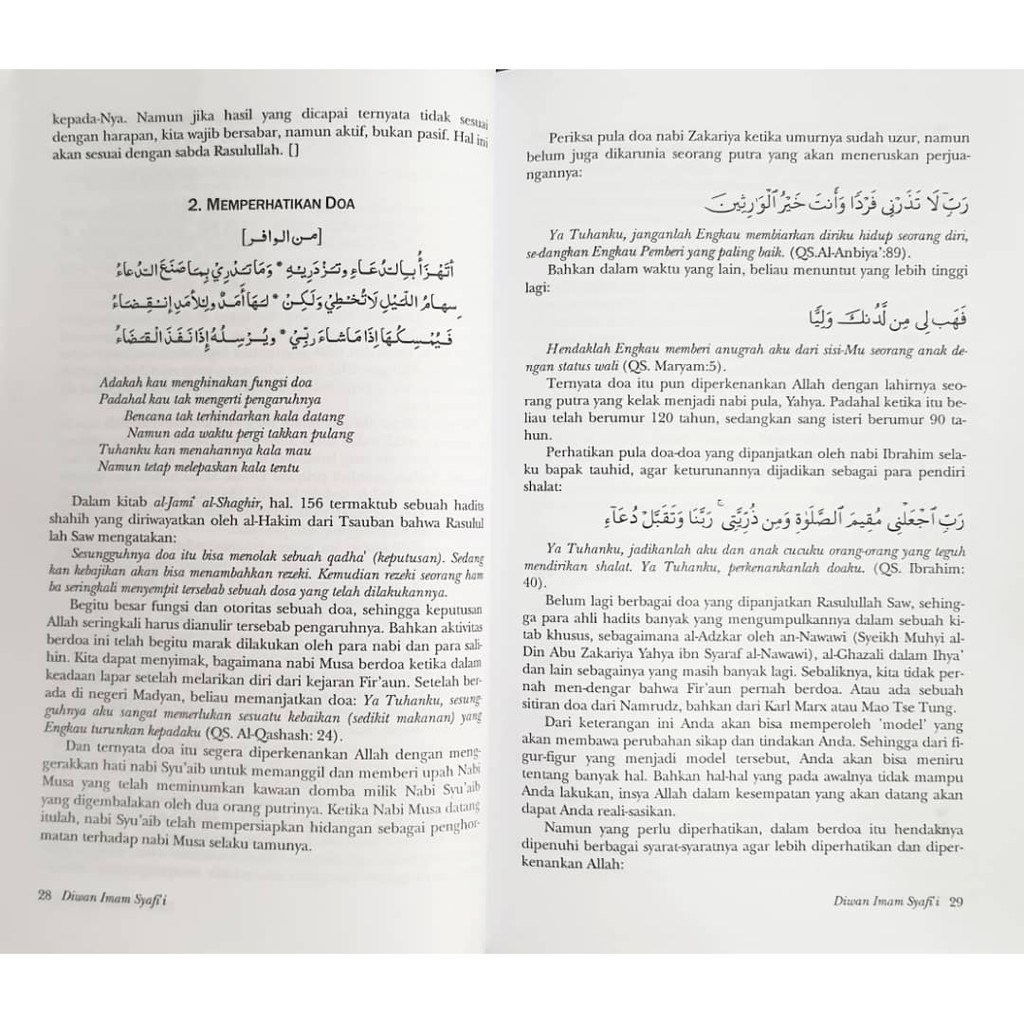 kepada-Nya. Namun jika hasil yang dicapai ternyata tidak sesuai
dengan harapan, kita wajib bersabar, namun aktif, bukan pasif. Hal ini
akan sesuai dengan sabda Rasulullah. []
2. MEMPERHATIKAN DOA
[من الوافر]
أَتَهْزَأُ بِالدُّعَاءِ وَتَزْدَرِيْهِ * وَمَا تَدْرِيْ بِمَا صَنَعَ الدُّعَاءُ
سِهَامُ اللَّيْلِ لَا تُخْطِيْ وَلَكِنْ * لَهَا أَمَدٌ وَلِلْأَمَدِ إِنْقِضَاءُ
فَيُمْسِكُهَا إِذَا مَا شَاءَ رَبِّيْ * وَيُرْسِلُهُ إِذَا نَفَذَ الْقَضَاءُ
Adakah kau menghinakan fungsi doa
Padahal kau tak mengerti pengaruhnya
Bencana tak terhindarkan kala datang
Namun ada waktu pergi takkan pulang
Tuhanku kan menahannya kala mau
Namun tetap melepaskan kala tentu
Dalam kitab al-Jami' al-Shaghir, hal. 156 termaktub sebuah hadits
shahih yang diriwayatkan oleh al-Hakim dari Tsauban bahwa Rasulul
lah Saw mengatakan:
Sesungguhnya doa itu bisa menolak sebuah qadha' (keputusan). Sedang
kan kebajikan akan bisa menambahkan rezeki. Kemudian rezeki seorang ham
ba seringkali menyempit tersebab sebuah dosa yang telah dilakukannya.
Begitu besar fungsi dan otoritas sebuah doa, sehingga keputusan
Allah seringkali harus dianulir tersebab pengaruhnya. Bahkan aktivitas
berdoa ini telah begitu marak dilakukan oleh para nabi dan para sali-
hin. Kita dapat menyimak, bagaimana nabi Musa berdoa ketika dalam
keadaan lapar setelah melarikan diri dari kejaran Fir'aun. Setelah ber-
ada di negeri Madyan, beliau memanjatkan doa: Ya Tuhanku, sesung-
guhnya aku sangat memerlukan sesuatu kebaikan (sedikit makanan) yang
Engkau turunkan kepadaku (QS. Al-Qashash: 24).
Dan ternyata doa itu segera diperkenankan Allah dengan meng-
gerakkan hati nabi Syu'aib untuk memanggil dan memberi upah Nabi
Musa yang telah meminumkan kawaan domba milik Nabi Syu'aib
yang digembalakan oleh dua orang putrinya. Ketika Nabi Musa datang
itulah, nabi Syu'aib telah mempersiapkan hidangan sebagai penghor-
matan terhadap nabi Musa selaku tamunya.
28 Diwan Imam Syafi'i
Periksa pula doa nabi Zakariya ketika umurnya sudah uzur, namun
belum juga dikarunia seorang putra yang akan meneruskan perjua-
ngannya:
رَبِّ لَا تَذَرْنِى فَرْدًا وَأَنتَ خَيْرُ ٱلْوَٰرِثِينَ
Ya Tuhanku, janganlah Engkau membiarkan diriku hidup seorang diri,
sedangkan Engkau Pemberi yang paling baik. (QS.Al-Anbiya':89).
Bahkan dalam waktu yang lain, beliau menuntut yang lebih tinggi
lagi:
فَهَبْ لِى مِن لَّدُنكَ وَلِيًّا
Hendaklah Engkau memberi anugrah aku dari sisi-Mu seorang anak de-
ngan status wali (QS. Maryam:5).
Ternyata doa itu pun diperkenankan Allah dengan lahirnya seo-
rang putra yang kelak menjadi nabi pula, Yahya. Padahal ketika itu be-
liau telah berumur 120 tahun, sedangkan sang isteri berumur 90 ta-
hun.
Perhatikan pula doa-doa yang dipanjatkan oleh nabi Ibrahim sela-
ku bapak tauhid, agar keturunannya dijadikan sebagai para pendiri
shalat:
رَبِّ ٱجْعَلْنِى مُقِيمَ ٱلصَّلَوٰةِ وَمِن ذُرِّيَّتِى ۚ رَبَّنَا وَتَقَبَّلْ دُعَآءِ
Ya Tuhanku, jadikanlah aku dan anak cucuku orang-orang yang teguh
mendirikan shalat. Ya Tuhanku, perkenankanlah doaku. (QS. Ibrahim:
40).
Belum lagi berbagai doa yang dipanjatkan Rasulullah Saw, sehing-
ga para ahli hadits banyak yang mengumpulkannya dalam sebuah ki-
tab khusus, sebagaimana al-Adzkar oleh an-Nawawi (Syeikh Muhyi al-
Din Abu Zakariya Yahya ibn Syaraf al-Nawawi), al-Ghazali dalam Ihya'
dan lain sebagainya yang masih banyak lagi. Sebaliknya, kita tidak per-
nah men-dengar bahwa Fir'aun pernah berdoa. Atau ada sebuah
sitiran doa dari Namrudz, bahkan dari Karl Marx atau Mao Tse Tung.
Dari keterangan ini Anda akan bisa memperoleh 'model' yang
akan membawa perubahan sikap dan tindakan Anda. Sehingga dari fi-
gur-figur yang menjadi model tersebut, Anda akan bisa meniru
tentang banyak hal. Bahkan hal-hal yang pada awalnya tidak mampu
Anda lakukan, insya Allah dalam kesempatan yang akan datang akan
dapat Anda reali-sasikan.
Namun yang perlu diperhatikan, dalam berdoa itu hendaknya
dipenuhi berbagai syarat-syaratnya agar lebih diperhatikan dan diper-
kenankan Allah:
Diwan Imam Syafi'i 29